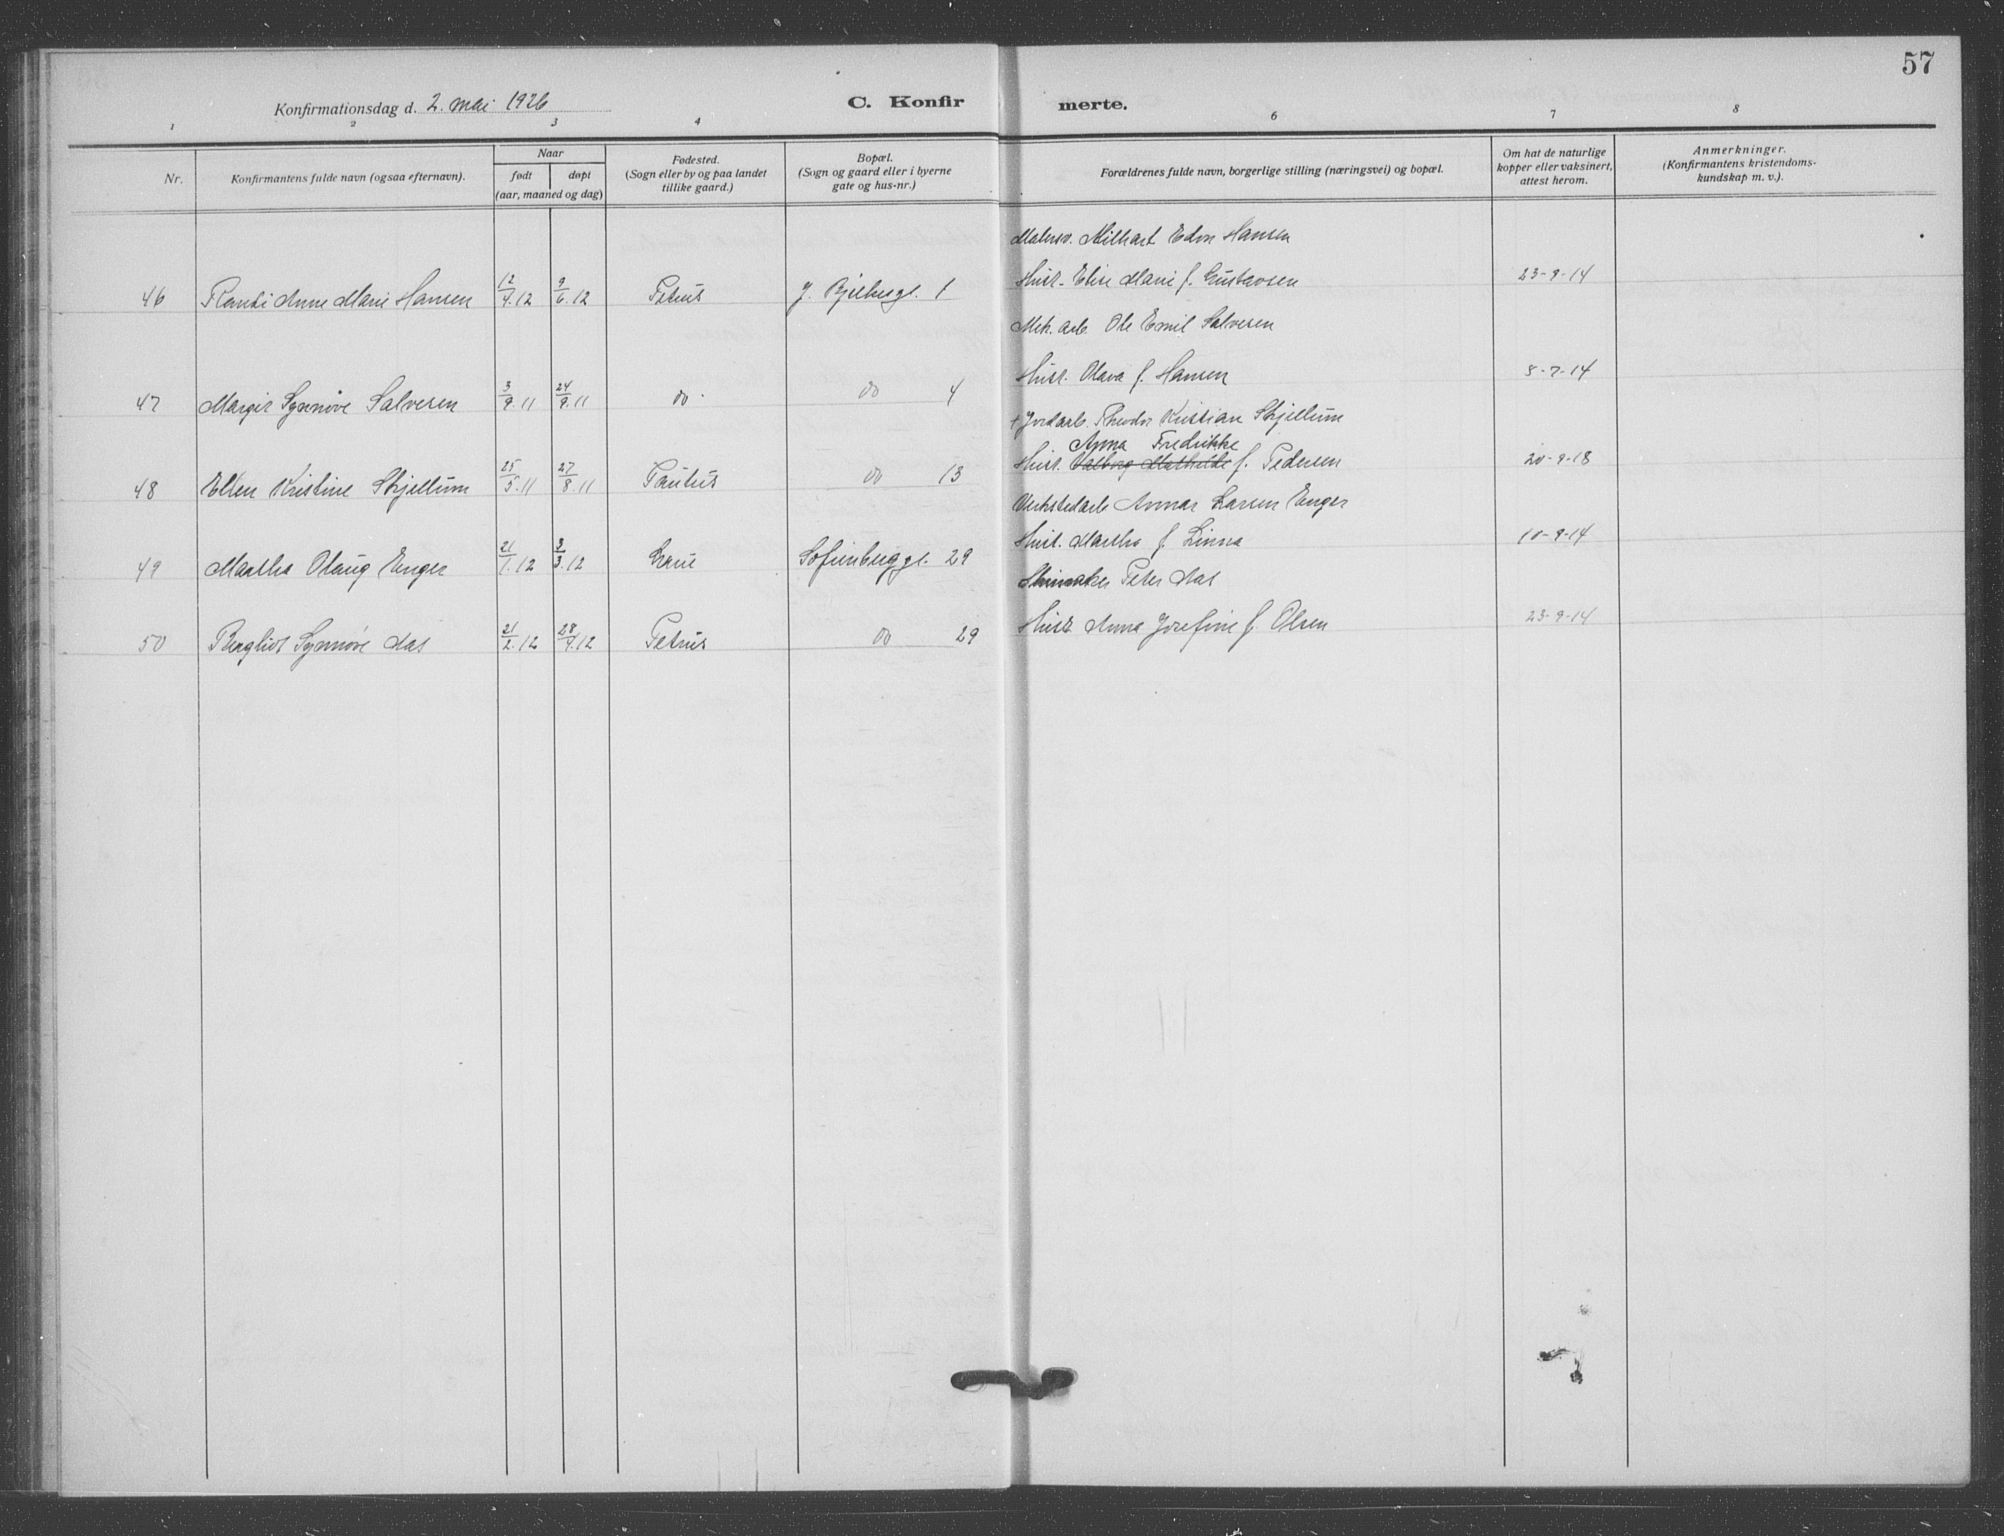 57
Konfirmationsdag d. 2. mai 1926
C. Konfir merte.
1 2 3 4 6 7 8
Nr.
Konfirmantens fulde navn (ogsaa efternavn).
Naar
født døpt
(aar, maaned og dag)
Fødested.
(Sogn eller by og paa landet
tillike gaard.)
Bopæl.
(Sogn og gaard eller i byerne
gate og hus-nr.)
Forældrenes fulde navn, borgerlige stilling (næringsvei) og bopæl.
Om hat de naturlige
kopper eller vaksinert,
attest herom.
Anmerkninger.
(Konfirmantens kristendoms-
kundskap m. v.).
Edvn Hansen
46 Anne Marie Hansen 12/4.12 9/6.12 Petrus J. Bjelkesgt. 1 Hust. Elise Marie f. Gustavsen 23-9-14
Mek. arb. Ole Emil Salvesen
47 Margit Synnøve Salvesen 3/9.11 24/9.11 do. do 4 Hust. Olava f. Hansen 8-7-14
+ Jordarb. Theodor Kristian Skjellum
Anna Fredrikke
48 Ellen Kristine Skjellum 25/5.11 27/8.11 Paulus do 13 Hust. Valborg Mathilde f. Pedersen 20-9-18
Verkstedarb Annar Larsen Enger
49 Martha Olaug Enger 21/1.12 3/3.12 Grue Sofienberggt. 29 Hust. Martha f. Linna 10-9-14
Skinmaker Peter Aas
50 Bergliot Synnøve Aas 21/2.12 28/4.12 Petrus do 29 Hust Anna Josefine f. Olsen 23-9-14